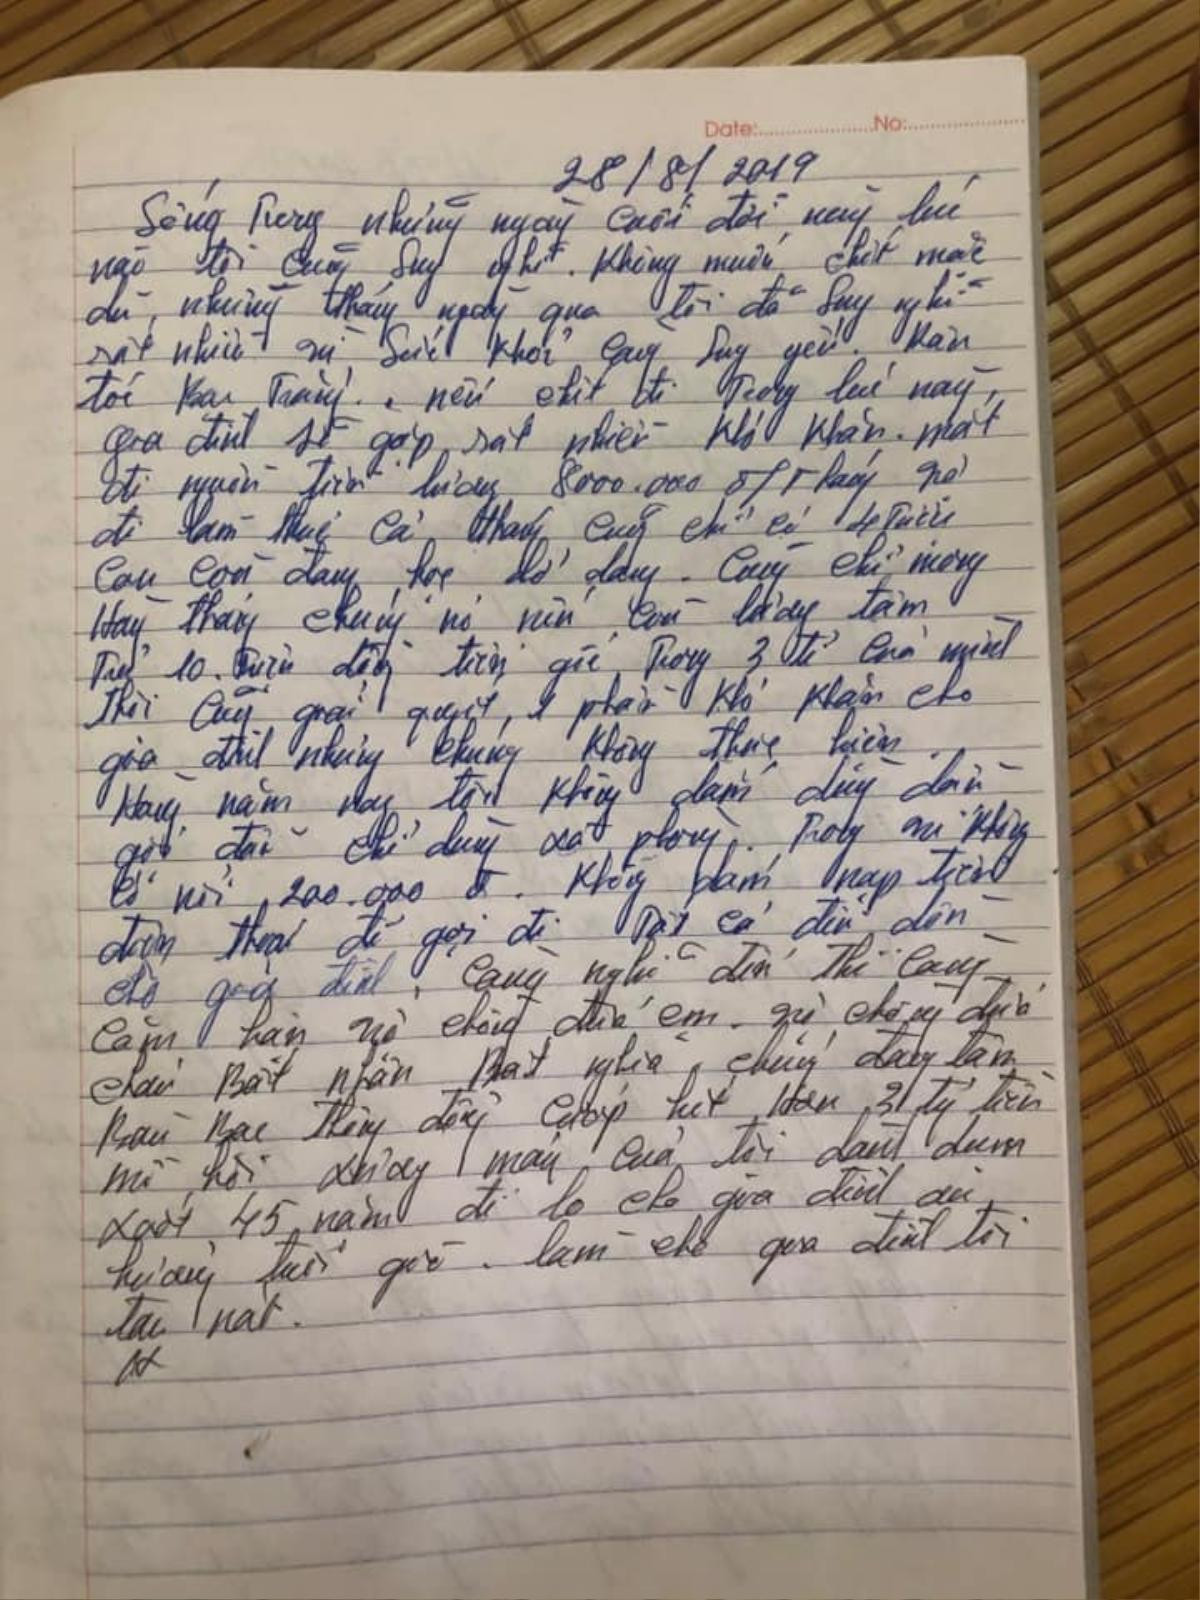 Date: No:
28/8/2019
Sống Trong những ngày cuối đời này lúc
nào tôi cũng suy nghĩ. Không muốn chết mặc
dù, những tháng ngày qua tôi đã suy nghĩ
rất nhiều vì sức khỏe càng suy yếu. Răn
tóc Bạc Trắng. nếu chết đi Trong lúc này,
gia đình sẽ gặp rất nhiều khó khăn. mất
đi nguồn tiền lương 8000.000 đ/Tháng vợ
đi làm thuê cả tháng cũng chỉ có 4 Triệu
Con còn đang học dở dang. Cũng chỉ mong
Hàng tháng chúng nó nếu còn lương tâm
Trả 10. Triệu đồng tiền gốc Trong 3 tỉ của mình
Thôi cũng giải quyết 1 phần khó khăn cho
gia đình nhưng chúng không thực hiện.
Hàng năm nay tôi không dám dùng dầu
gội đầu chỉ dùng xà phòng. Trong ví không
có nổi 200.000 đ. Không dám nạp tiền
điện thoại để gọi đi Tất cả để dồn
cho gia đình. Càng nghĩ đến thì càng
căm hận vợ chồng đứa em. vợ chồng đứa
cháu Bất nhân Bất nghĩa, chúng đang tâm
Bàn Bạc thông đồng cướp hết Hơn 3 tỷ tiền
mồ hôi xương máu của tôi dành dụm
suốt 45 năm để lo cho gia đình an
hưởng tuổi già. làm cho gia đình tôi
tan nát.